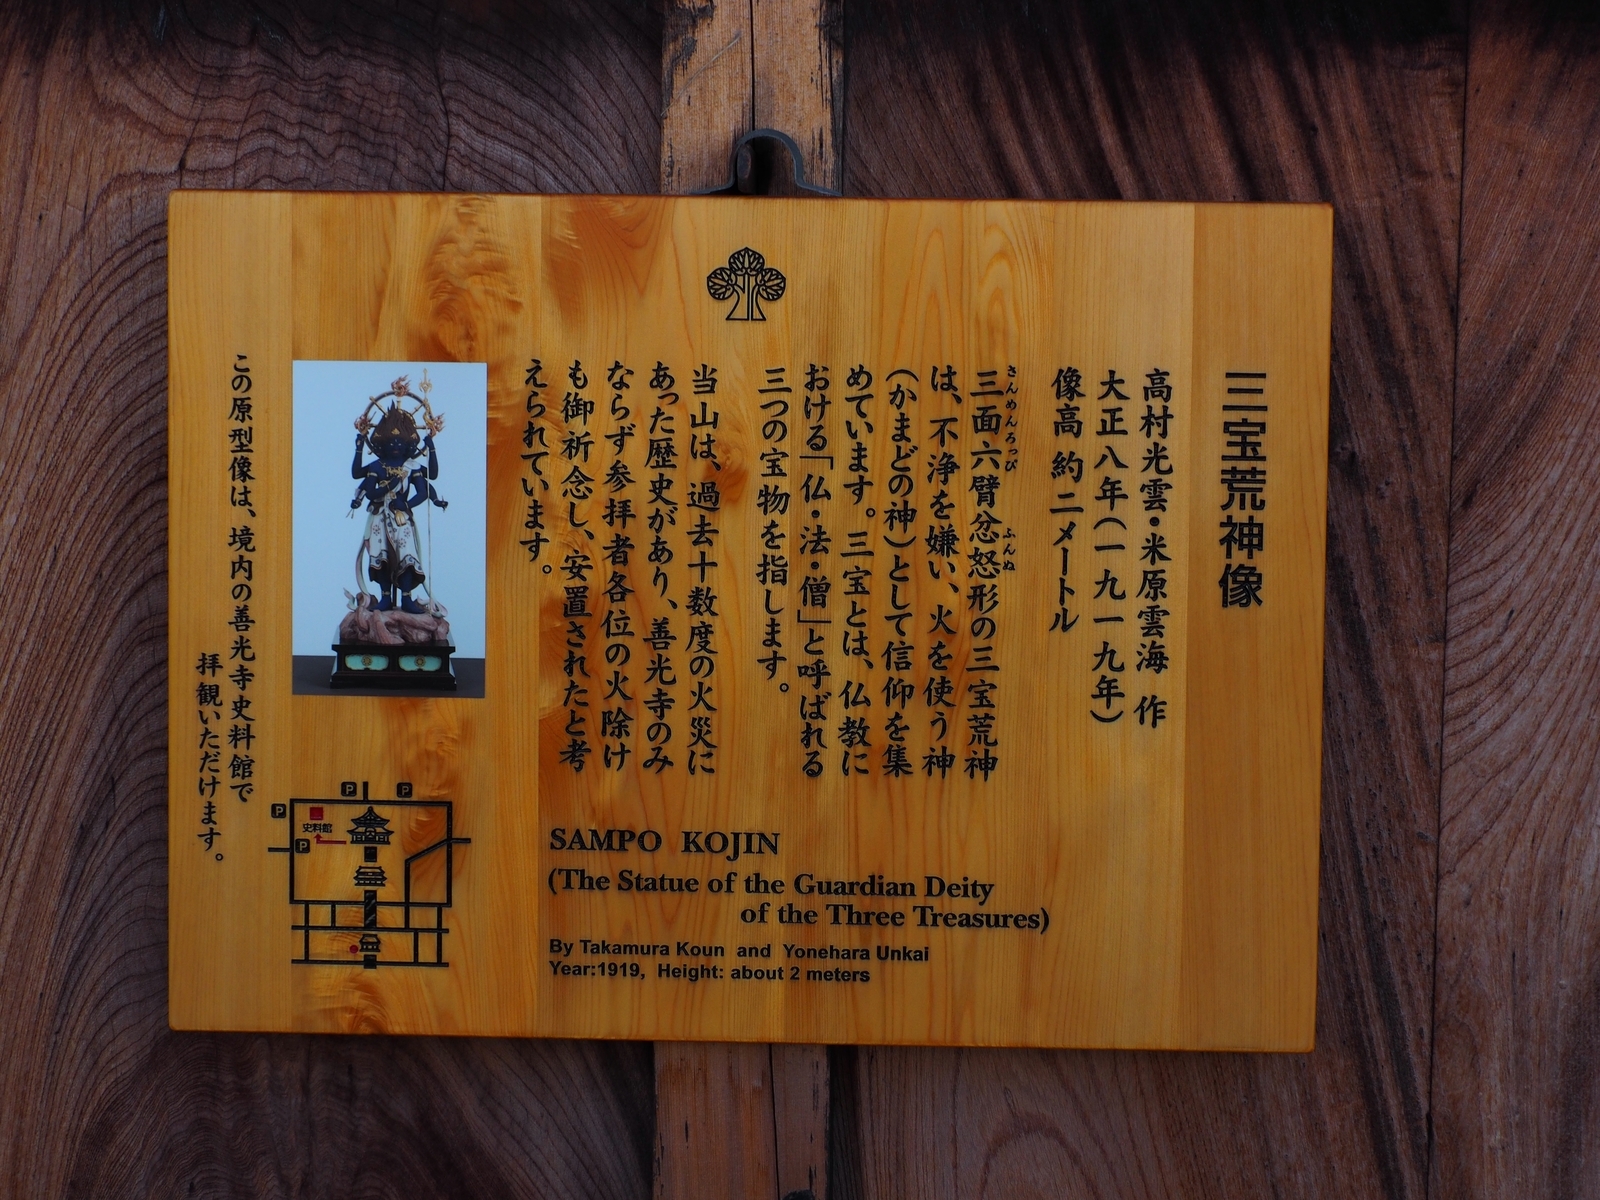 三宝荒神像
高村光雲・米原雲海 作
大正八年(一九一九年)
像高 約二メートル
さんめんろっぴ ふんぬ
三面六臂忿怒形の三宝荒神
は、不浄を嫌い、火を使う神
(かまどの神)として信仰を集
めています。三宝とは、仏教に
おける「仏・法・僧」と呼ばれる
三つの宝物を指します。
当山は、過去十数度の火災に
あった歴史があり、善光寺のみ
ならず参拝者各位の火除け
も御祈念し、安置されたと考
えられています。
この原型像は、境内の善光寺史料館で
拝観いただけます。
P P
P
史料館
P
SAMPO KOJIN
(The Statue of the Guardian Deity
of the Three Treasures)
By Takamura Koun and Yonehara Unkai
Year:1919, Height: about 2 meters